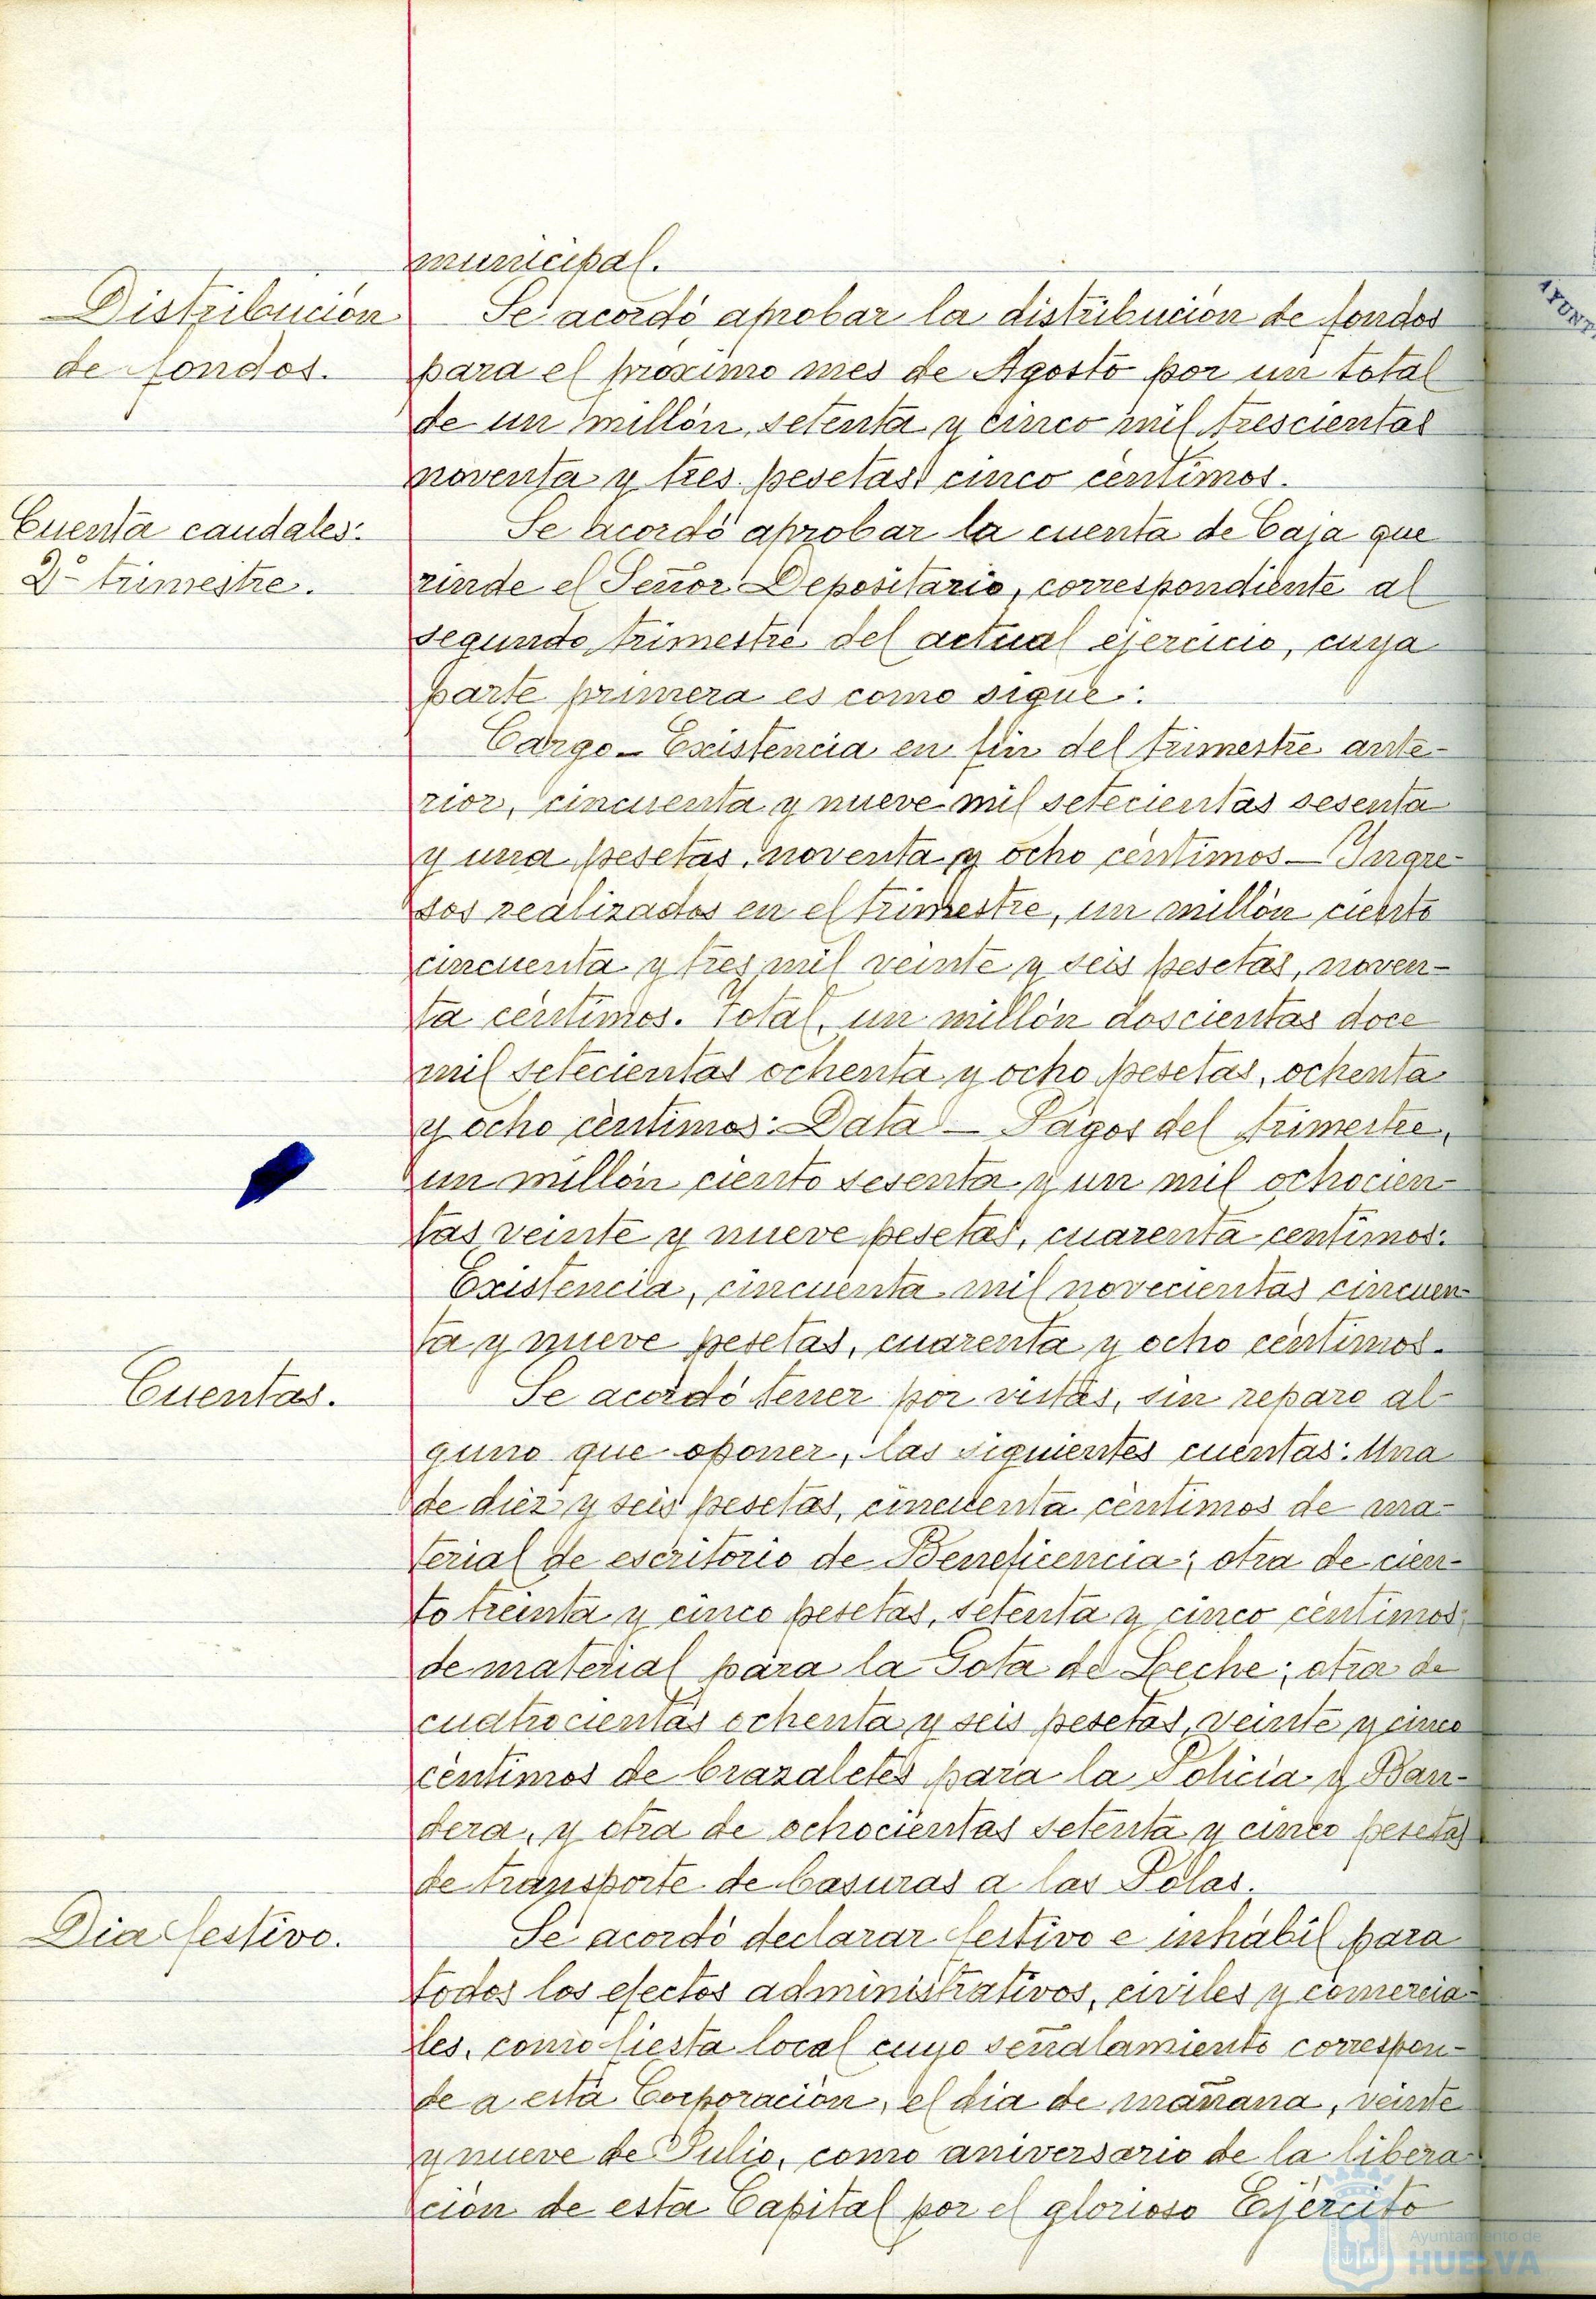 municipal.
Distribución
de fondos.
Se acordó aprobar la distribución de fondos
para el próximo mes de Agosto por un total
de un millón, setenta y cinco mil trescientas
noventa y tres pesetas cinco centimos.
Cuenta caudales:
2º trimestre.
Se acordó aprobar la cuenta de Caja que
rinde el Señor Depositario, correspondiente al
segundo trimestre del actual ejercicio, cuya
parte primera es como sigue:
Cargo - Existencia en fin del trimestre ante-
rior, cincuenta y nueve mil setecientas sesenta
y una pesetas, noventa y ocho céntimos - Ingre-
sos realizados en el trimestre, un millón ciento
cincuenta y tres mil veinte y seis pesetas, noven-
ta céntimos. Total, un millón doscientas doce
mil setecientas ochenta y ocho pesetas, ochenta
y ocho céntimos: Data - Pagos del trimestre,
un millón ciento sesenta y un mil ochocien-
tas veinte y nueve pesetas, cuarenta centimos.
Existencia, cincuenta mil novecientas cincuen-
ta y nueve pesetas, cuarenta y ocho céntimos.
Cuentas.
Se acordó tener por vistas, sin reparo al-
guno que oponer, las siguientes cuentas: Una
de diez y seis pesetas, cincuenta céntimos de ma-
terial de escritorio de Beneficencia; otra de cien-
to treinta y cinco pesetas, setenta y cinco céntimos
de material para la Gota de Leche; otra de
cuatrocientas ochenta y seis pesetas, veinte y cinco
céntimos de brazaletes para la Policía y Ban-
dera, y otra de ochocientas setenta y cinco pesetas
de transporte de basuras a las Polas.
Dia festivo.
Se acordó declarar festivo e inhábil para
todos los efectos administrativos, civiles y comercia-
les, como fiesta local cuyo señalamiento correspon-
de a esta Corporación, el dia de mañana, veinte
y nueve de Julio, como aniversario de la libera-
ción de esta Capital por el glorioso Ejército
AYUNT
Ayuntamiento de
HUELVA